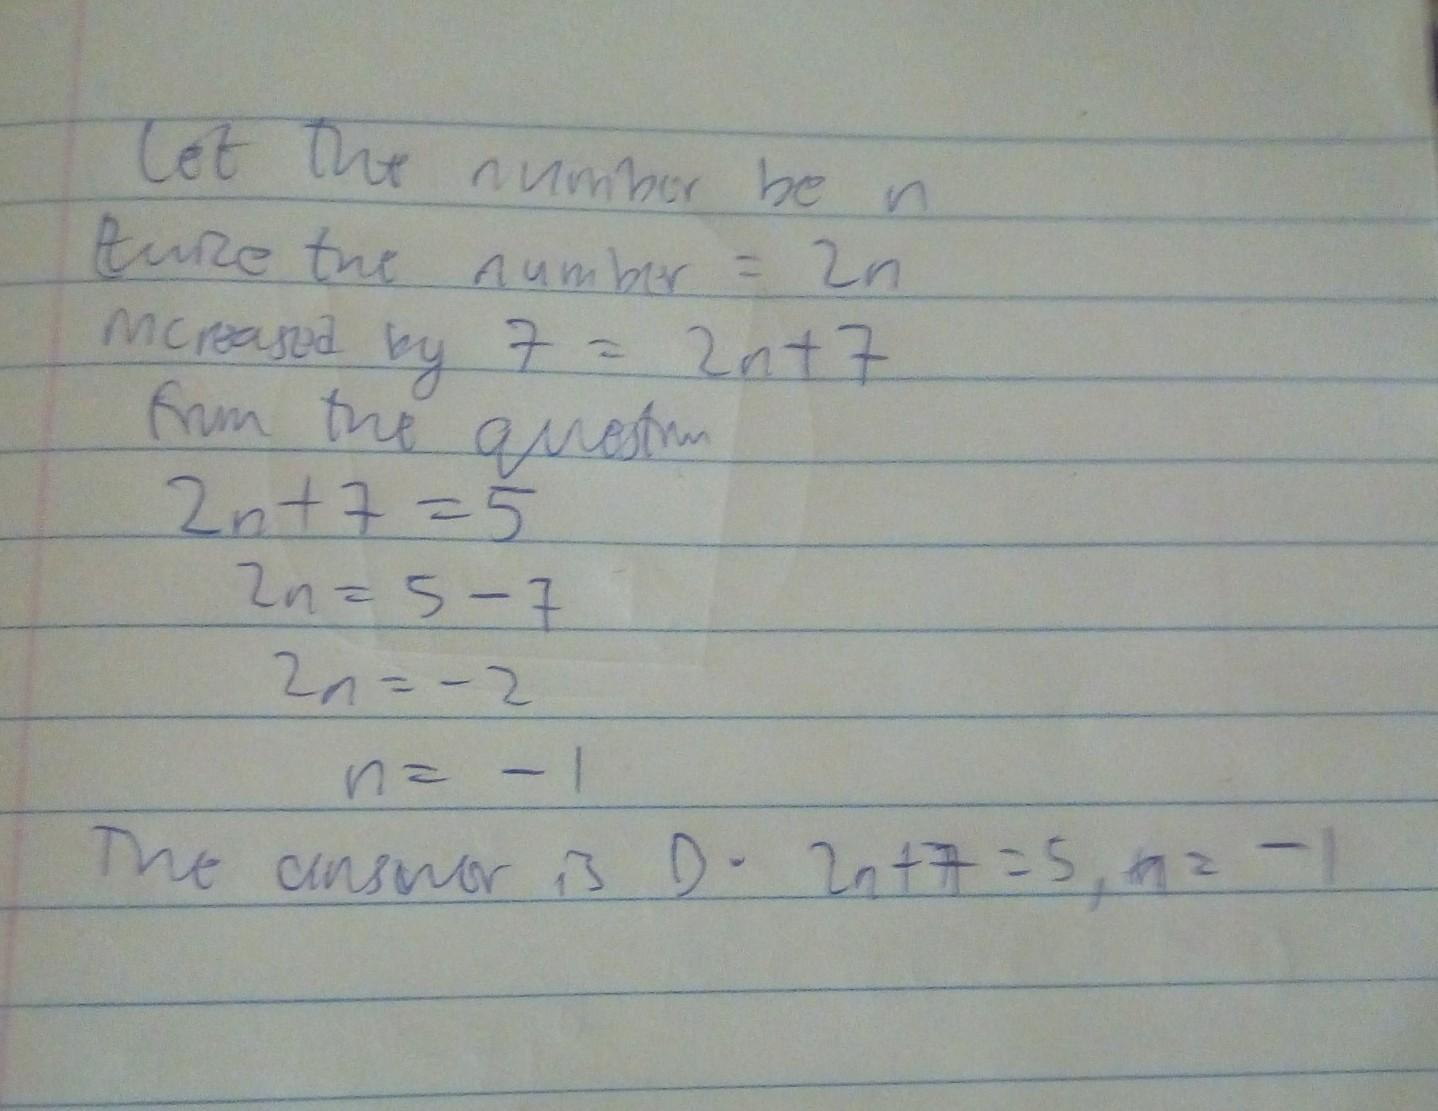 Let the number be n
twice the number = 2n
increased by 7 = 2n+7
from the question
2n+7 =5
2n= 5-7
2n=-2
n= -1
The answer is D. 2n+7=5, n= -1